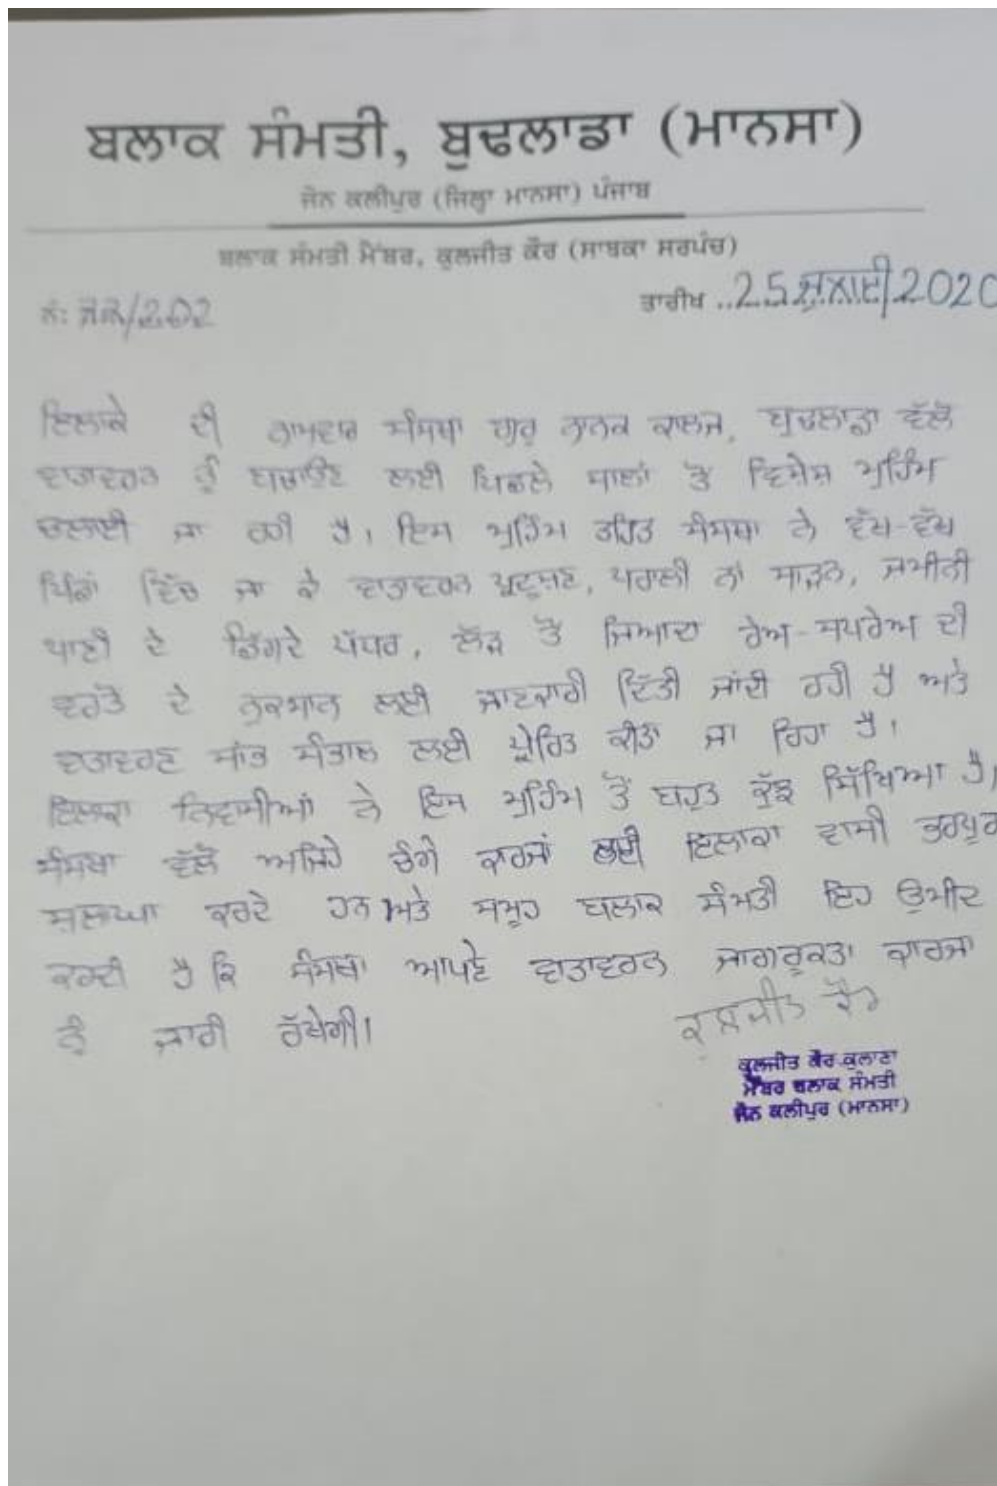 ਬਲਾਕ ਸੰਮਤੀ, ਬੁਢਲਾਡਾ (ਮਾਨਸਾ)
ਜੋਨ ਕਲੀਪੁਰ (ਜਿਲ੍ਹਾ ਮਾਨਸਾ) ਪੰਜਾਬ
ਬਲਾਕ ਸੰਮਤੀ ਮੈਂਬਰ, ਕੁਲਜੀਤ ਕੌਰ (ਸਾਬਕਾ ਸਰਪੰਚ)
ਨੰ: /202
ਤਾਰੀਖ ..25 ਜੁਲਾਈ 2020
ਇਲਾਕੇ ਦੀ ਨਾਮਵਰ ਸੰਸਥਾ ਗੁਰੂ ਨਾਨਕ ਕਾਲਜ, ਬੁਢਲਾਡਾ ਵੱਲੋਂ
ਵਾਤਾਵਰਨ ਨੂੰ ਬਚਾਉਣ ਲਈ ਪਿਛਲੇ ਸਾਲਾਂ ਤੋਂ ਵਿਸ਼ੇਸ਼ ਮੁਹਿੰਮ
ਚਲਾਈ ਜਾ ਰਹੀ ਹੈ। ਇਸ ਮੁਹਿੰਮ ਤਹਿਤ ਸੰਸਥਾ ਨੇ ਵੱਖ-ਵੱਖ
ਪਿੰਡਾਂ ਵਿੱਚ ਜਾ ਕੇ ਵਾਤਾਵਰਨ ਪ੍ਰਦੂਸ਼ਣ, ਪਰਾਲੀ ਨਾ ਸਾੜਨ, ਜਮੀਨੀ
ਪਾਣੀ ਦੇ ਡਿੱਗਦੇ ਪੱਧਰ, ਲੋੜ ਤੋਂ ਜਿਆਦਾ ਰੇਅ-ਸਪਰੇਅ ਦੀ
ਵਰਤੋਂ ਦੇ ਨੁਕਸਾਨ ਲਈ ਜਾਣਕਾਰੀ ਦਿੱਤੀ ਜਾਂਦੀ ਰਹੀ ਹੈ ਅਤੇ
ਵਾਤਾਵਰਣ ਸਾਂਭ ਸੰਭਾਲ ਲਈ ਪ੍ਰੇਰਿਤ ਕੀਤਾ ਜਾ ਰਿਹਾ ਹੈ।
ਇਲਾਕਾ ਨਿਵਾਸੀਆਂ ਨੇ ਇਸ ਮੁਹਿੰਮ ਤੋਂ ਬਹੁਤ ਕੁੱਝ ਸਿੱਖਿਆ ਹੈ।
ਸੰਸਥਾ ਵੱਲੋਂ ਅਜਿਹੇ ਚੰਗੇ ਕਾਰਜਾਂ ਲਈ ਇਲਾਕਾ ਵਾਸੀ ਭਰਪੂਰ
ਸ਼ਲਾਘਾ ਕਰਦੇ ਹਨ ਅਤੇ ਸਮੂਹ ਬਲਾਕ ਸੰਮਤੀ ਇਹ ਉਮੀਦ
ਕਰਦੀ ਹੈ ਕਿ ਸੰਸਥਾ ਆਪਣੇ ਵਾਤਾਵਰਨ ਜਾਗਰੂਕਤਾ ਕਾਰਜਾਂ
ਨੂੰ ਜਾਰੀ ਰੱਖੇਗੀ।
ਕੁਲਜੀਤ ਕੌਰ
ਕੁਲਜੀਤ ਕੌਰ ਕੁਲਾਣਾ
ਮੈਂਬਰ ਬਲਾਕ ਸੰਮਤੀ
ਜੋਨ ਕਲੀਪੁਰ (ਮਾਨਸਾ)